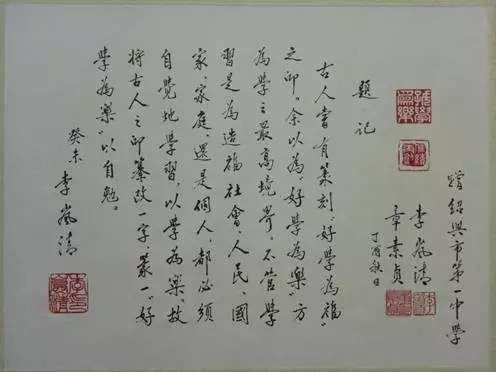 贈紹興市第一中學
李嵐清
章素貞
丁酉秋日
題記
古人嘗有篆刻“好學為福”
之印。余以為“好學為樂”方
為學之最高境界。不管學
習是為造福社會、人民、國
家、家庭、還是個人,都必須
自覺地學習,以學為樂。故
將古人之印篆改一字,篆一“好
學為樂”以自勉。
癸未 李嵐清